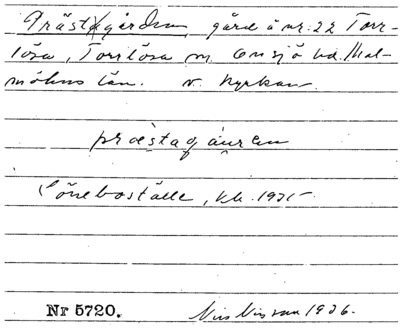 Prästgården, gård å nr. 22 Torr-
lösa, Torrlösa sn. Onsjö hd. Mal-
möhus län. v. kyrkan.
præstagáuren
Löneboställe, kb. 1931
Nr 5720. Nils Nilsson 1936.